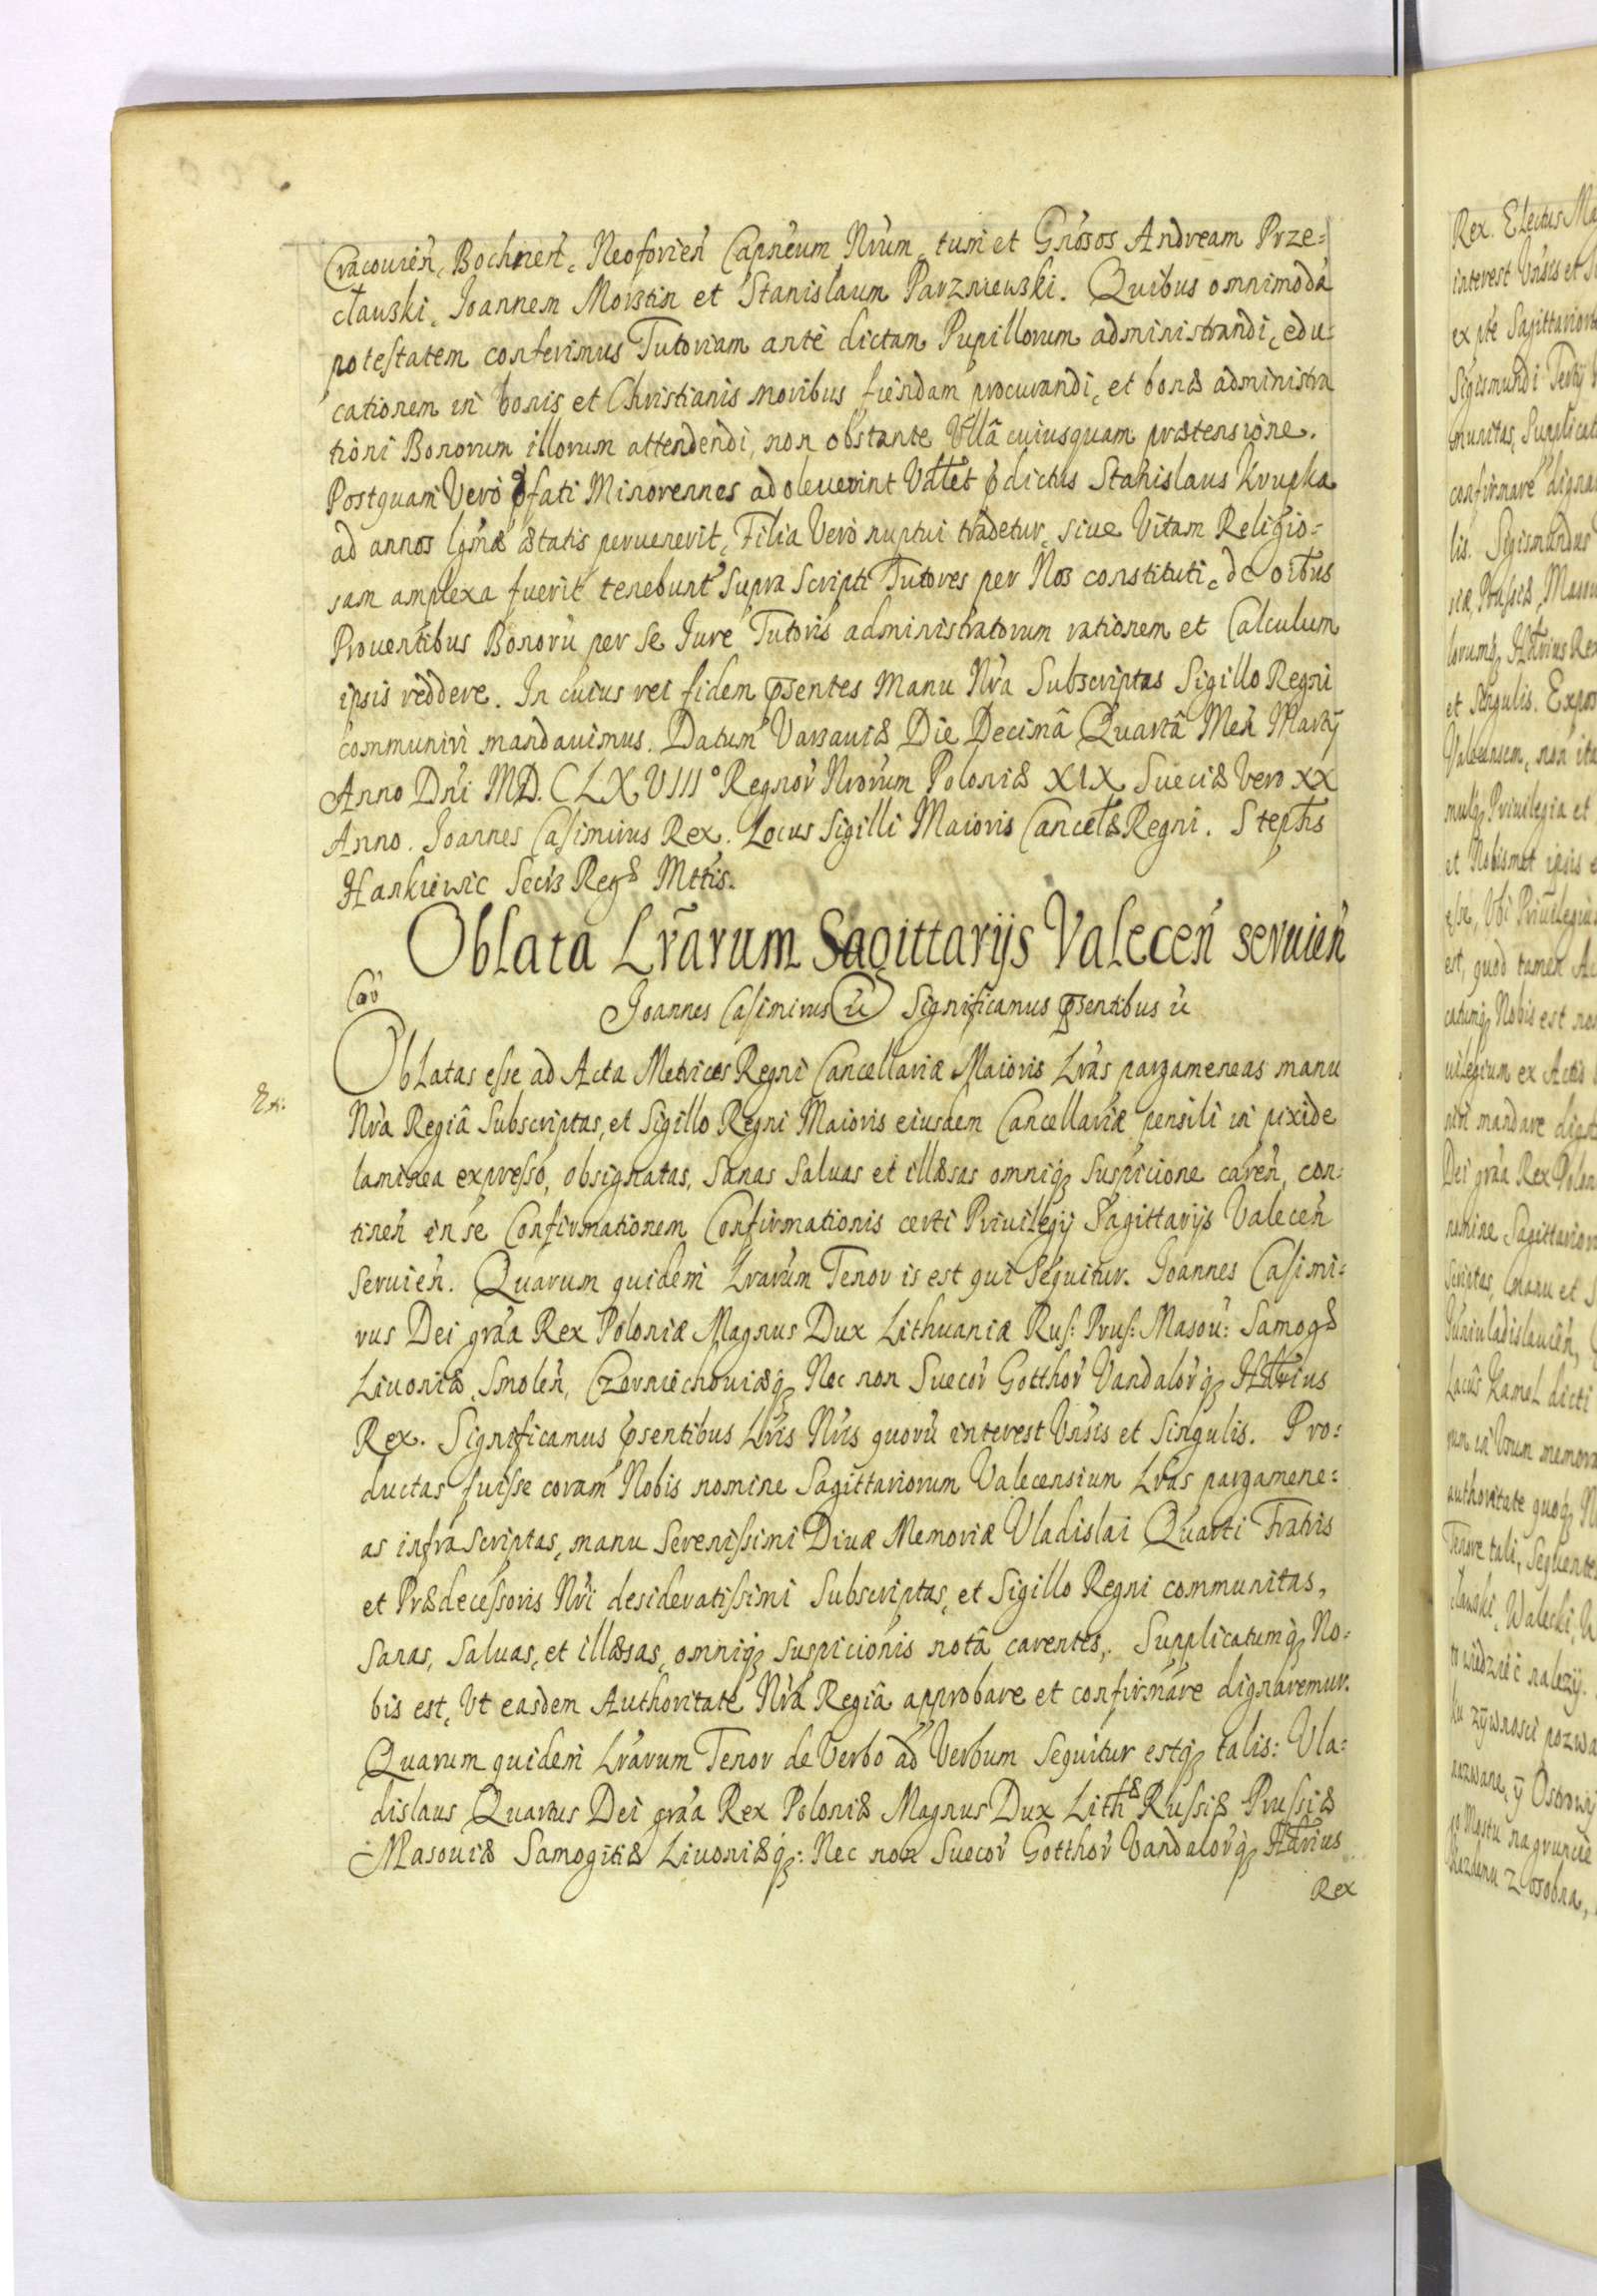 Cracouień, Bochneń, Neoforień Capneum Nrum, tum et Gnosos Andream Prze=
cławski, Joannem Morstin et Stanislaum Parzniewski. Quibus omnimodã
potestatem conferimus Tutoriam ante dictam Pupillorum administrandi, edu=
cationem in bonis et Christianis moribus fiendam procurandi, et bonæ administra
tioni Bonorum illorum attendendi, non obstante Ullâ cuiusquam prætensione.
Postquam Vero p̃fati Minorennes adoleuerint Vtłet p̃dictus Stanislaus Krupka
ad annos lgmæ ætatis peruenerit, Filia Vero nuptui tradetur, siue Vitam Religio=
sam amplexa fuerit tenebunt' Supra Scripti Tutores per Nos constituti, de oibus
Prouentibus Bonorũ per se Jure Tutoris administratorum rationem et Calculum
ipsis reddere. In cuius rei fidem p̃sentes Manu Nra Subscriptas Sigillo Regni
communiri mandauimus. Datum Varsauiæ Die Decimâ Quartâ Meń Martÿ
Anno Dni MD. CLXVIII° Regnor Nrorum Poloniæ XIX Sueciæ Vero XX
Anno. Joannes Casimirus Rex. Locus Sigilli Maioris Cancełłæ Regni. Stepħs
Hankiewic Secrs Regæ Mttis.
Oblata Lrarum Sagittarijs Valeceń seruień
Joannes Casimirus Significamus p̃sentibus
Oblatas esse ad Acta Metrices Regni Cancellariæ Maioris Lras pargameneas manu
Nra Regiâ Subscriptas, et Sigillo Regni Maioris eiusdem Cancellariæ pensili in pixide
laminea expresso, obsignatas, Sanas Saluas et illæsas omniq3 Suspicione careń, con=
tineń in se Confirmationem Confirmationis certi Priuilegij Sagittarijs Valeceń
seruień. Quarum quidem Lrarum Tenor is est qui Sequitur. Joannes Casimi=
rus Dei gra'a Rex Poloniæ Magnus Dux Lithuaniæ Rus: Prus: Masou: Samogæ
Liuoniæ, Smoleń, Czerniechouiæq3 Nec non Suecor Gotthor Vandalorq3 Hærius
Rex. Significamus p̃sentibus Lris Nris quorũ interest Vnsis et Singulis. Pro=
ductas fuisse coram Nobis nomine Sagittariorum Valecensium Lras pargamene=
as infra scriptas, manu Serenissimi Diuæ Memoriæ Vladislai Quarti Fratris
et Prædecessoris Nri desideratissimi Subscriptas, et Sigillo Regni communitas,
Sanas, Saluas, et illæsas, omniq3 suspicionis notâ carentes,. Supplicatumq3 No=
bis est, Vt easdem Authoritate Nra Regiâ approbare et confirmare dignaremur.
Quarum quidem Lrarum Tenor de Verbo ad Verbum Sequitur estq3 talis: Vla=
dislaus Quartus Dei gra'a Rex Poloniæ Magnus Dux Lithæ Russiæ Prussiæ
Masouiæ Samogitiæ Liuoniæq3: Nec non Suecor Gotthor Vandalorq3 Hærius
Rex
Rex. Electus
interest Vnsis et
ex pte Sagittario
Sigismundi Tertij
munitas, Supplicat
confirmare digna
lis. Sigismundus
siæ, Prussiæ, Masou
lorumq3 Hærius Rex
et Singulis. Expos
Valecensem, non ita
mulq3 Priuilegia et
et Nobismet ipsis e
esse, Vbi Priuilegiu
est, quod tamen Ac
catumq3 Nobis est no
uilegium ex Actis
niri mandare dign
Dei gra'a Rex Polon
nomine Sagittarioru
Scriptas, manu et S
Juniuladislauień,
Lacûs Kamel dicti
rum in Vsum memora
authoritate quoq3 N
Tenore tali, Sequente
cławski, Wałecki, U
to wiedziéć nalezÿ.
ku zÿwnosci pozwa
nazwane, ÿ Ostrowÿ
Mostu na gruncie
Kazdemu z osobna,